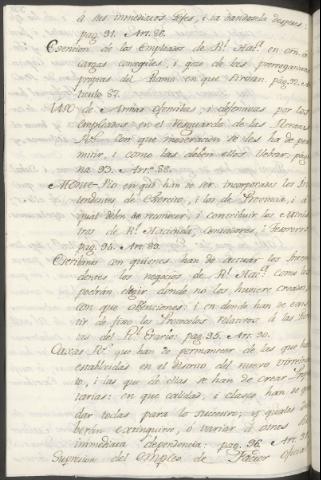 á sus inmediatos Gefes, i sa dandosela despues:
pag. 91. Art. 86.
Esencion de los Empleados de Rl. Haz. en orn. á
cargas concegiles, i goze de los prerrogativas
propias del Ramo en que sirvan pag. 92. Ar-
ticulo 87.
Uso de Armas ofensivas i defensivas por los
Empleados en el resguardo de las Rentas
Rs. con que moderacion se les ha de per-
mitir, i como las deben ellos usar: pagi-
na 93. Art. 88.
Monte-Pio en que han de ser incorporados los In-
tendentes de Exercito, i los de Provincia, i á
qual deben de reconocer, i contribuir los Minis-
tros de Rl. Hacienda, Contadores, i Tesoreros
pag. 94. Art. 89.
Escribanos con quienes han de actuar los Inten-
dentes los negocios de Rl. Haz. como los
podrán elegir donde no los hubiere creados,
con que obvenciones: i en donde han de exis-
tir de fixo los Protocolos relativos á las Ren-
tas del Rl. Erario: pag. 95. Art. 90.
Caxas Rs. que han de permanecer de las que hai
establecidas en el distrito del nuevo virreina-
to, i las que de ellas se han de crear Prop-
rietarias: en que calidad, i clase han de que-
dar todas para lo sucesivo; y quales de-
berán extinguirse, ó variar á otras su
inmediata dependencia: pag. 96. Art. 91.
Supresion del Empleo de Factor oficial